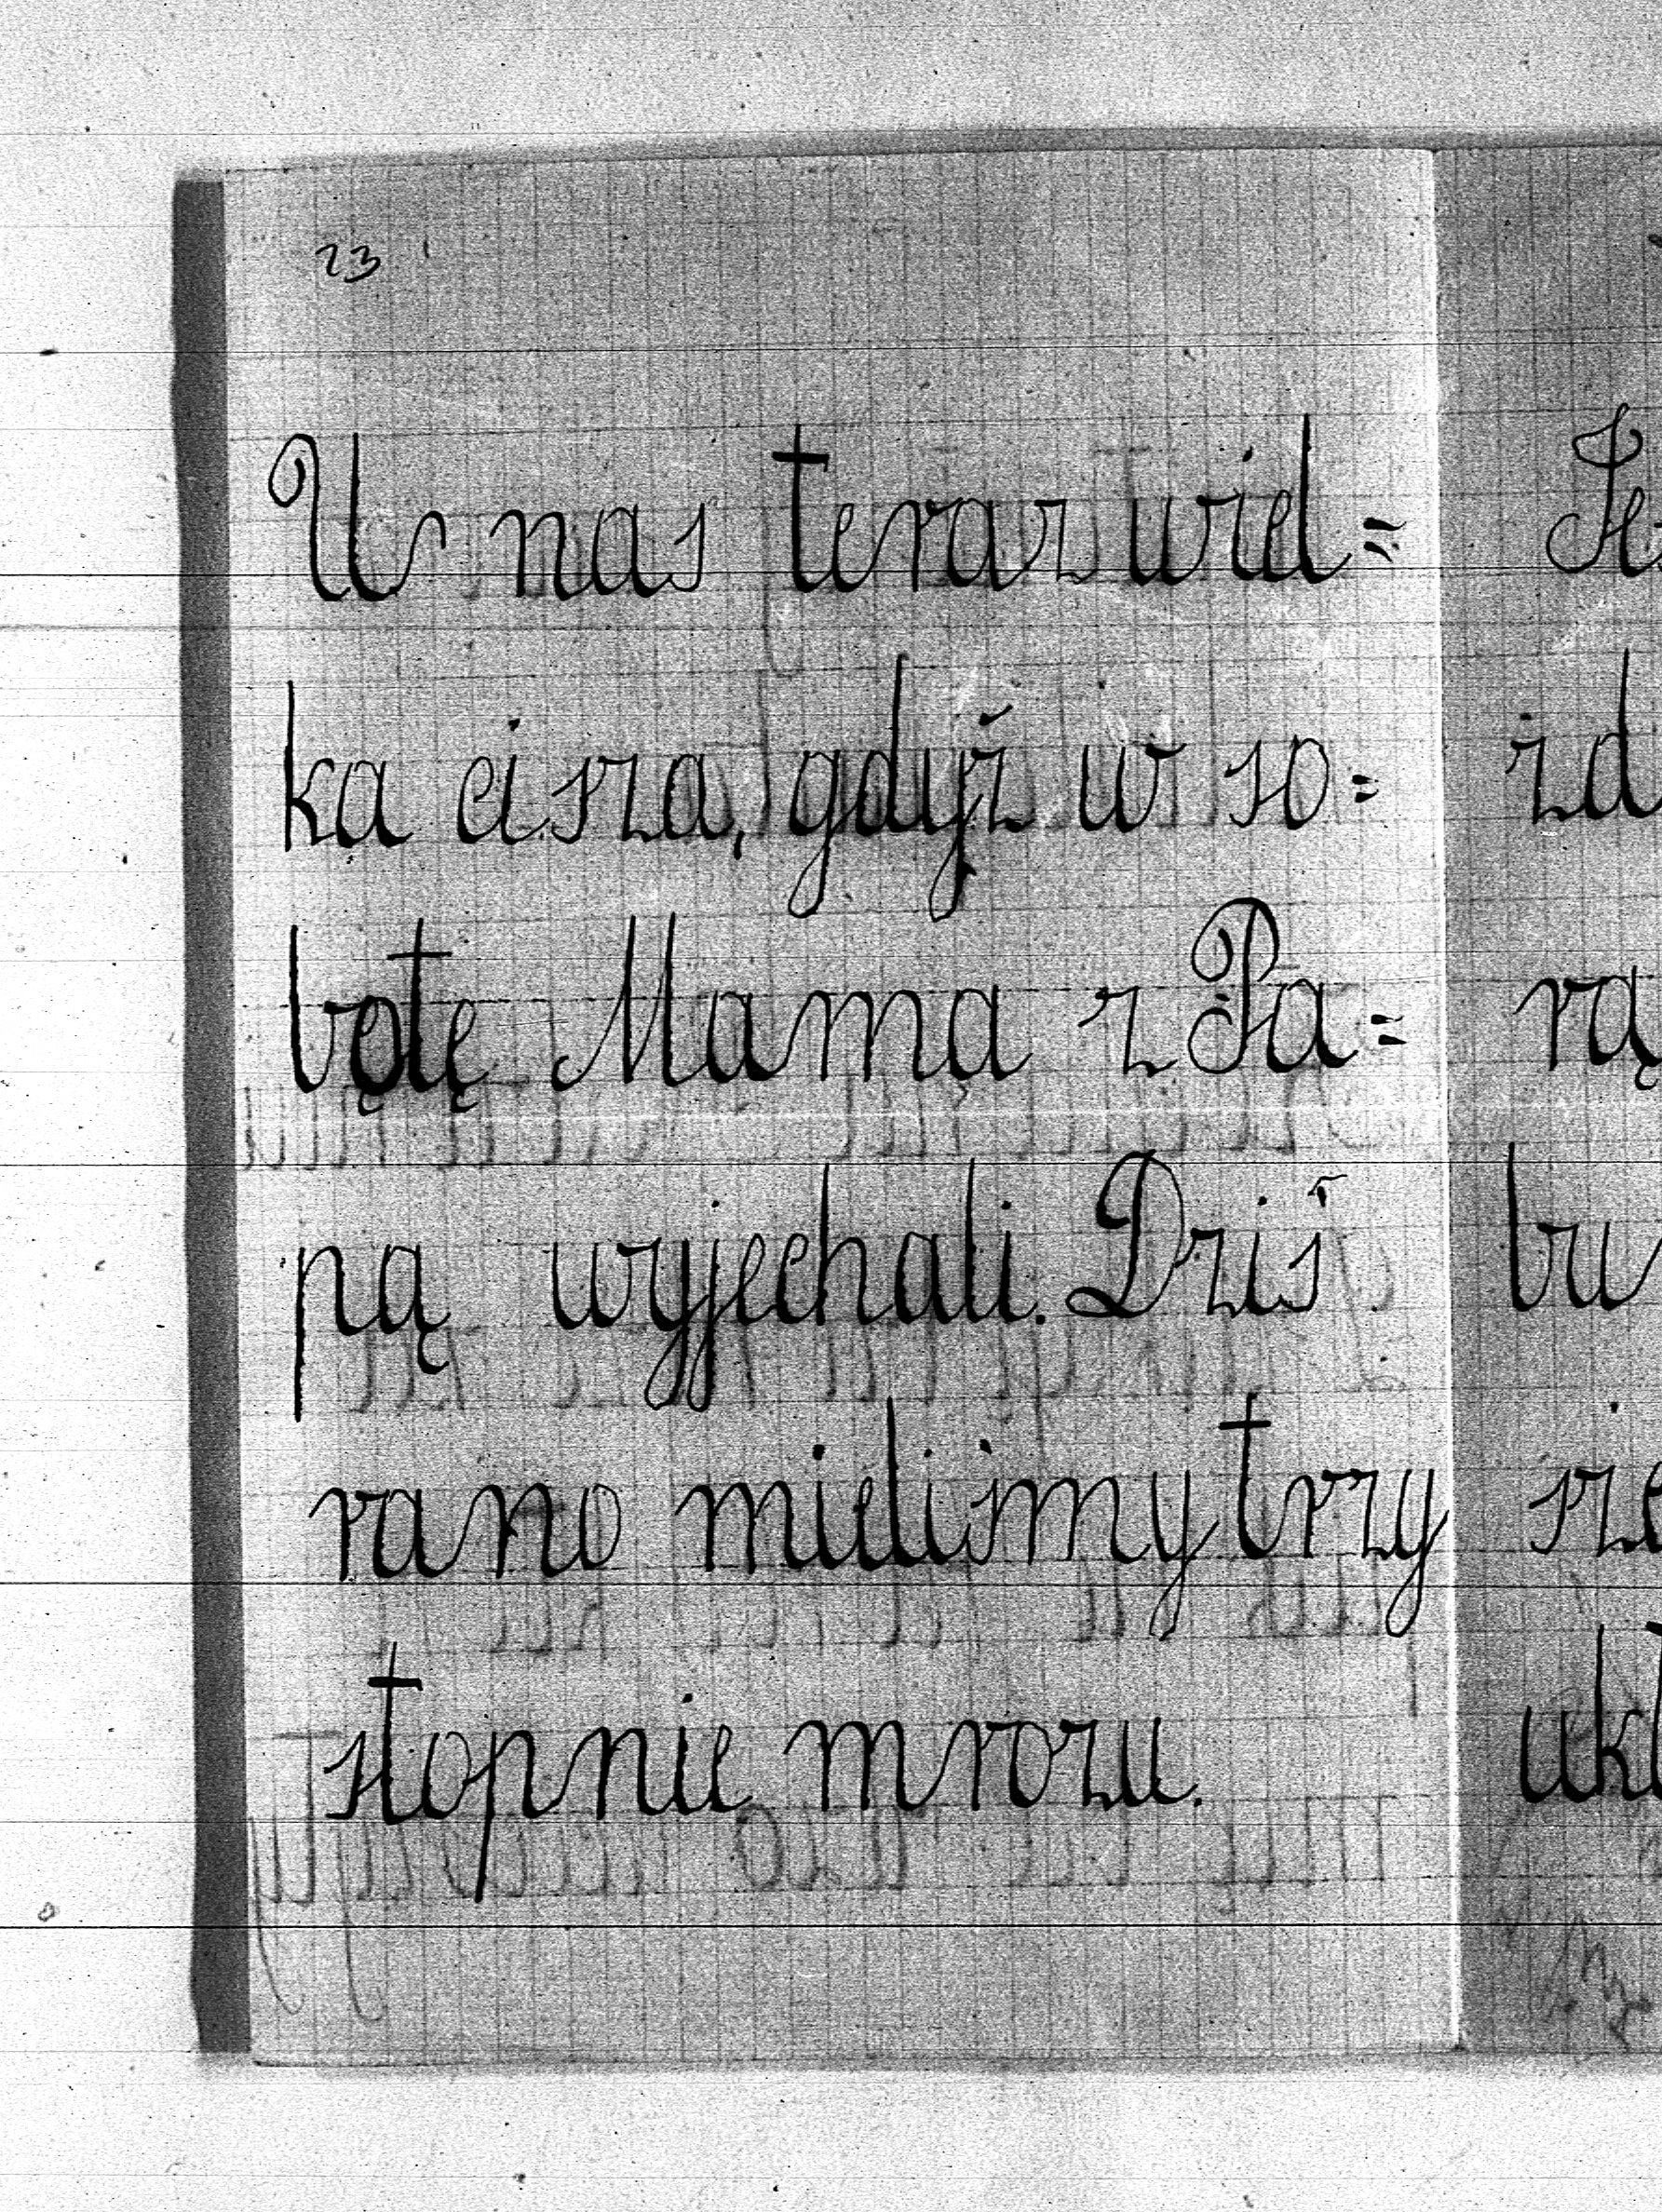 23
U nas teraz wiel=
ka cisza, gdyż w so=
botę Mama z Pa=
pą wyjechali. Dziś
rano mieliśmy trzy
stopnie mrozu.